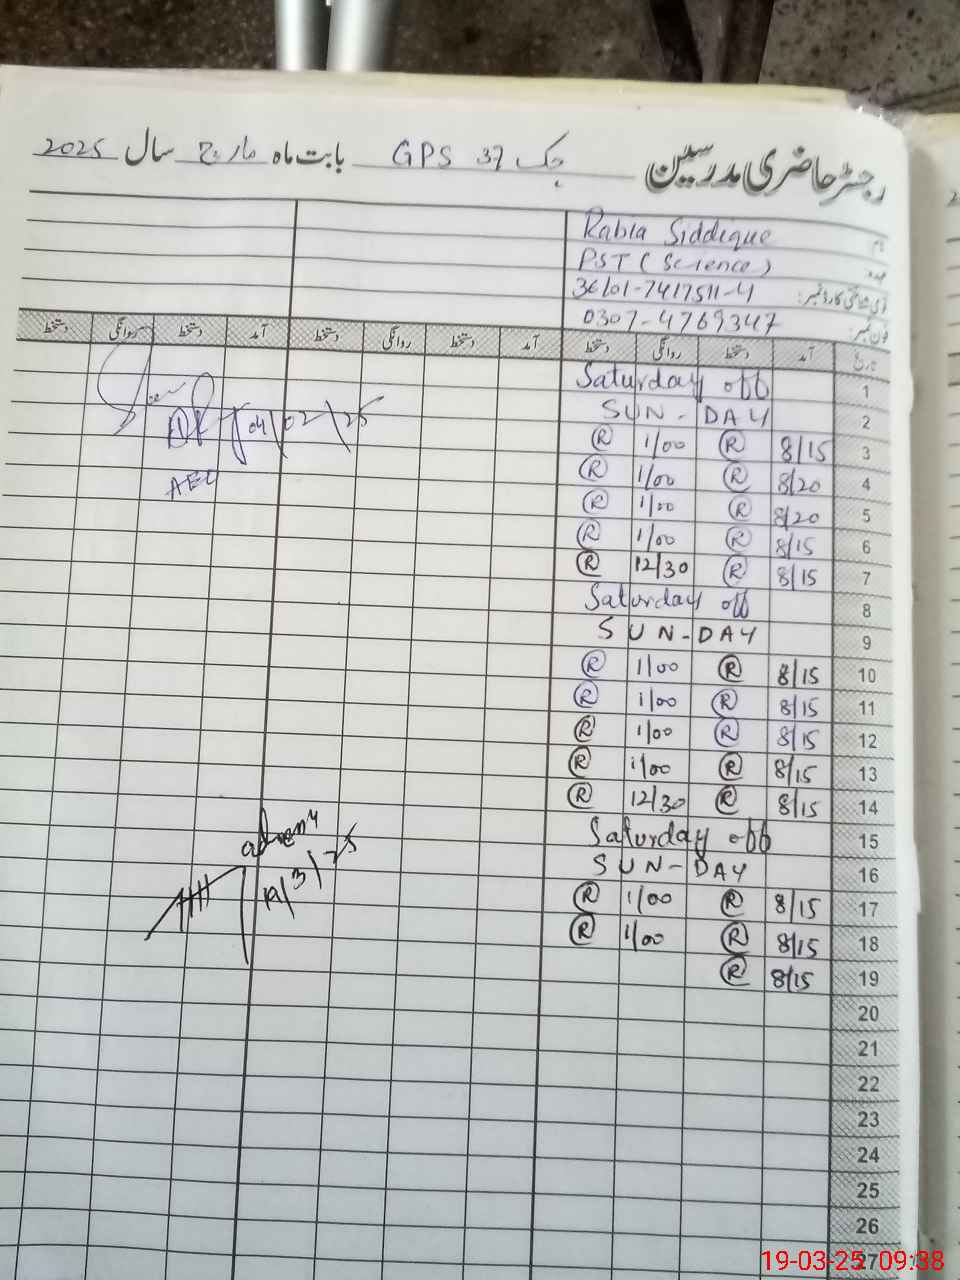 رجسٹر حاضری مدرسین چک GPS 37 بابت ماہ مارچ سال 2025
نام Rabia Siddique
عہدہ PST (Science)
قومی شناختی کارڈ نمبر: 36101-7417511-4
فون نمبر: 0307-4769347
تاریخ آمد دستخط روانگی دستخط آمد دستخط روانگی دستخط آمد دستخط روانگی دستخط
1 Saturday off
2 SUN-DAY
3 8/15 R 1/00 R
4 8/20 R 1/00 R
5 8/20 R 1/00 R
6 8/15 R 1/00 R
7 8/15 R 12/30 R
8 Saturday off
9 SUN-DAY
10 8/15 R 1/00 R
11 8/15 R 1/00 R
12 8/15 R 1/00 R
13 8/15 R 1/00 R
14 8/15 R 12/30 R
15 Saturday off
16 SUN-DAY
17 8/15 R 1/00 R
18 8/15 R 1/00 R
19 8/15 R
20
21
22
23
24
25
26
27
04/02/25
AEO
19/3/25
19-03-25 09:38